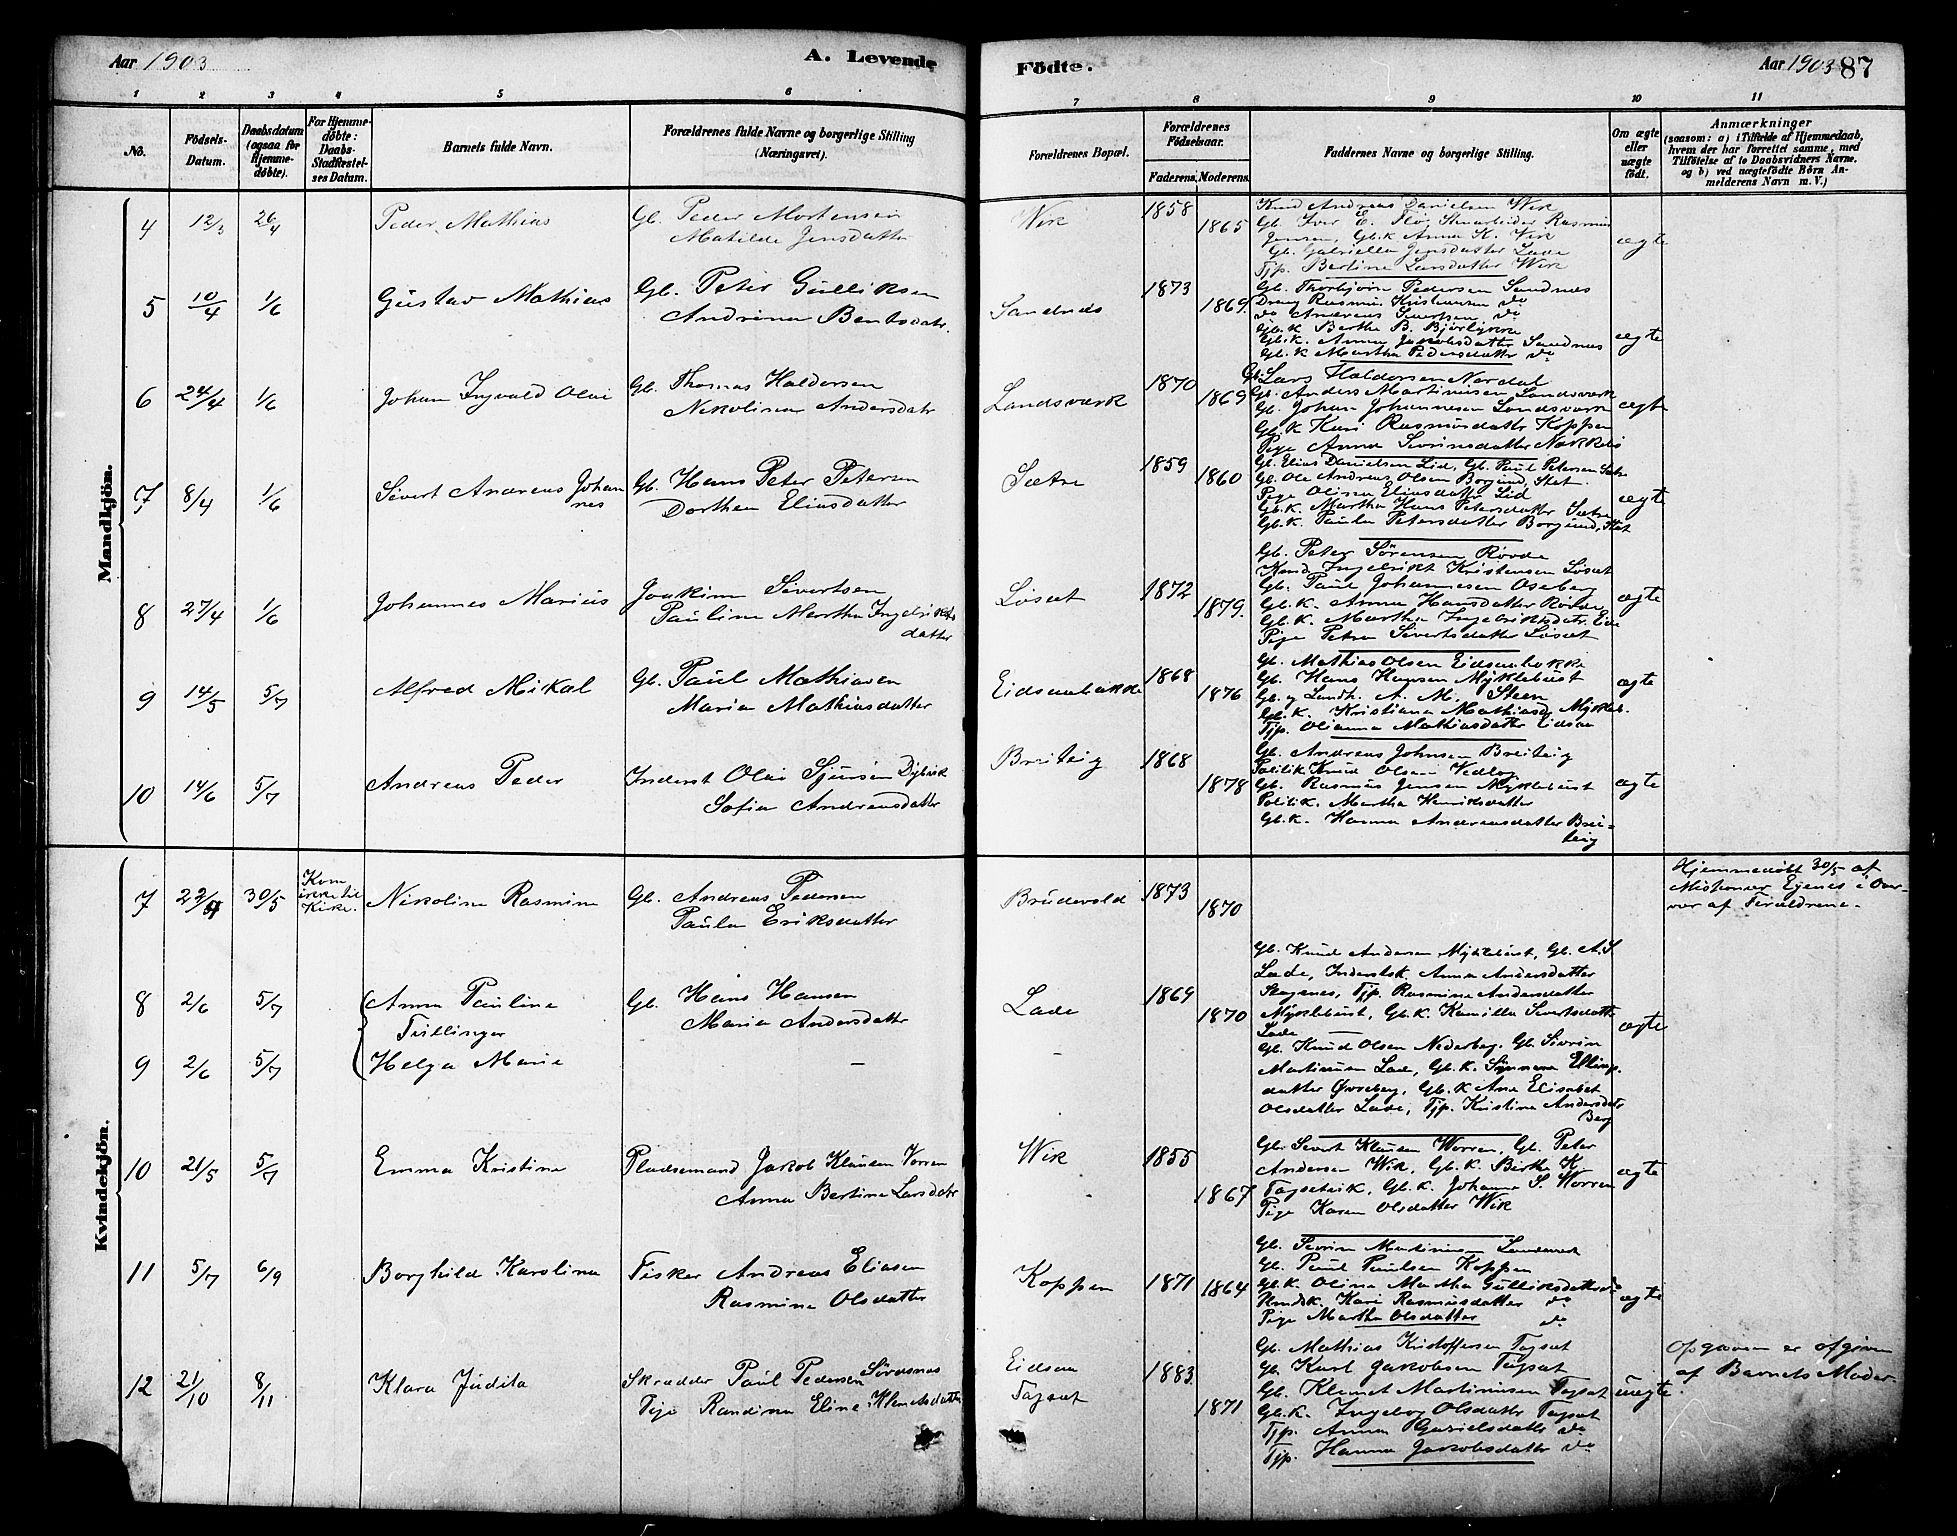 Aar 1903
A. Levende
Födte.
Aar 1903 87
1 2 3 4 5 6 7 8 9 10 11
No.
Födsels-
Datum.
Daabsdatum
(ogsaa for
Hjemme-
döbte).
For Hjemme-
döbte:
Daabs-
Stadfæstel-
ses Datum.
Barnets fulde Navn.
Forældrenes fulde Navne og borgerlige Stilling
(Næringsvei).
Forældrenes Bopæl.
Forældrenes
Födselsaar.
Faderens. Moderens.
Faddernes Navne og borgerlige Stilling.
Om ægte
eller
uægte
födt.
Anmærkninger
(saasom: a) i Tilfælde af Hjemmedaab,
hvem der har forrettet samme, med
Tilföielse af to Daabsvidners Navne.
og b) ved uægtefödte Börn An-
melderens Navn m. V.)
Mandkjön.
4 12/3 26/4 Peder Mathias
Gb. Peder Mortensen
Matilde Jensdatter
Wik 1858 1865
Knud Andreas Danielsen Wik
Gb. Iver E. Flø, Stenarbeider Rasmus
Jensen, Gb.k Anna K. Wik
Gb. Gabriella Jensdatter Lade
Tjp. Bertine Larsdatter Wik
ægte
5 10/4 1/6 Gustav Mathias
Gb. Peter Gulliksen
Andrina Bentsdatr.
Sandnes 1873 1869.
Gb. Thorbjørn Pedersen Sandnes
Dreng Rasmus Kristiansen do
do Andreas Sivertsen do
Gb.k Berthe B. Bjørlykke
Gb.k. Anna Jakobsdatter Sandnes
Gb.k Martha Pedersdatter do
ægte
6 24/4 1/6 Johan Ingvald Olai
Gb. Thomas Haldorsen
Nikolina Andersdatr
Landsværk 1870 1869
Gb. Lars Haldorsen Nordal
Gb. Anders Martinusen Landsværk
Gb. Johan Johannesen Landsværk
Gb.k Kari Rasmusdattr Koppen
Pige Anna Sivrinsdatter Nækkebø
ægte
7 8/4 1/6 Sivert Andreas Johan
nes
Gb. Hans Peter Petersen
Dorthea Eliasdatter
Sætre 1859 1860
Gb. Elias Danielsen Lid, Gb. Paul Petersen Sætre
Gb. Ole Andreas Olsen Borgund, Stat.
Pige Olina Eliasdatter Lid
Gb.k. Martha Hans Petersdatter Sætre
Gb.k. Paula Petersdatter Borgund, Stat
ægte
8 27/4 1/6 Johannes Marius
Joakim Sivertsen
Pauline Martha Ingebrikts
datter
Løset 1872 1879.
Gb. Peter Sørensen Røvde
Ingebrikt Kristensen Løset
Gb. Paul Johannesen Oseberg
Gb.k. Anna Hansdatter Røvde
Gb.k. Martha Ingebriktsdatr. Eide
Pige Petra Sivertsdatter Løset
ægte
9 14/5 5/7 Alfred Mikal
Gb. Paul Mathiasen
Maria Mathiasdatter
Eidsaabakke 1868 1876
Gb. Mathias Olsen Eidsaabakke
Gb. Hans Hansen Myklebust
Gb. og Landh. A. M. Steen
Gb.k. Kristiana Mathiasd. Mykleb.
Tjp. Olianna Mathiasdatter Eidsaa
ægte
10 14/6 5/7 Andreas Peder
Inderst Olai Sjursen Djupvik
Sofia Andreasdatter
Breiteig 1868 1878
Gb. Andreas Johnsen Breiteig
Politik Knud Olsen Vedlog
Gb. Rasmus Jensen Myklebust
Politik. Martha Henriksdatter
Gb.k. Hanna Andreasdatter Brei-
teig
ægte
Kvindekjön.
7 22/4 30/5 Kom
ikke til
Kirke. Nikoline Rasmine
Gb. Andreas Pedersen
Paula Eriksdatter
Brudevold 1873 1870
Hjemmedøbt 30/5 af
Missionær Ejenes i Over-
vær af Forældrene.
8 2/6 5/7 Anna Pauline
Tullinger
Gb. Hans Hansen
Maria Andersdatter
Lade 1869 1870
Gb. Knud Andersen Myklebust, Gb. A. S
Lade, Inderstsk. Anna Andersdatter
Skognes, Tjp. Rasmine Andersdatter
Myklebust, Gb.k. Kamilla Sivertsdattr
Lade
ægte
9 2/6 5/7 Helga Marie
– –
Gb. Knud Olsen Nederberg, Gb. Sivrin
Martinusen Lade, Gb.k. Synneva Ellings
datter Øvreberg, Gb.k Ane Elisabet
Olsdatter Lade, Tjp. Kristina Andersdatr
Berg
10 21/5 5/7 Emma Kristine
Pladsemand Jakob Klausen Vorren
Anna Bertine Larsdatr
Wik 1855 1867
Gb. Sivert Klausen Worren, Gb. Peter
Andersen Wik, Gb.k. Birthe K.
Tagsetvik, Gb.k. Johanne S. Worren
Pige Karen Olsdatter Wik
ægte
11 5/7 6/9 Borghild Karolina
Fisker Andreas Eliasen
Rasmine Olsdatter
Koppen 1871 1864
Gb. Sivrin Martinusen Landsværk
Gb. Paul Paulsen Koppen
Gb.k. Olina Martha Gulliksdatter do
Kari Rasmusdatter do
Pige Martha Olsdatter do
ægte
12 21/10 8/11 Klara Judita
Skrædder Paul Pedersen Sørdsnes
Pige Randina Eline Klemetsdatter
Eidsaa
Tagset 1883. 1871
Gb. Mathias Kristoffersen Tagset
Gb. Karl Jakobsen Tagset
Gb. Klemet Martinusen Tagset
Gb.k. Ingebog Olsdattr Tagset
Tjp. Anna Gurielsdattr do
Tjp. Hanna Jakobsdatter do
uægte
Opgaven er afgiven
af Barnets Moder.